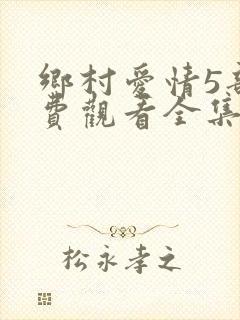 鄉村愛情5部
費觀看全集
松永孝之